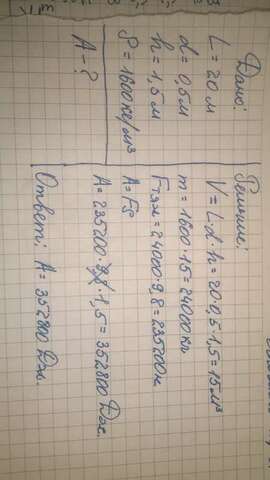 Дано:
L = 20 м
d = 0,5 м
h = 1,5 м
ρ = 1600 кг/м³
A - ?
Решение:
V = L·d·h = 20·0,5·1,5 = 15 м³
m = 1600·15 = 24000 кг
Fтяж = 24000·9,8 = 235200 н
A = FS
A = 235200·1,5 = 352800 Дж.
Ответ: A = 352800 Дж.